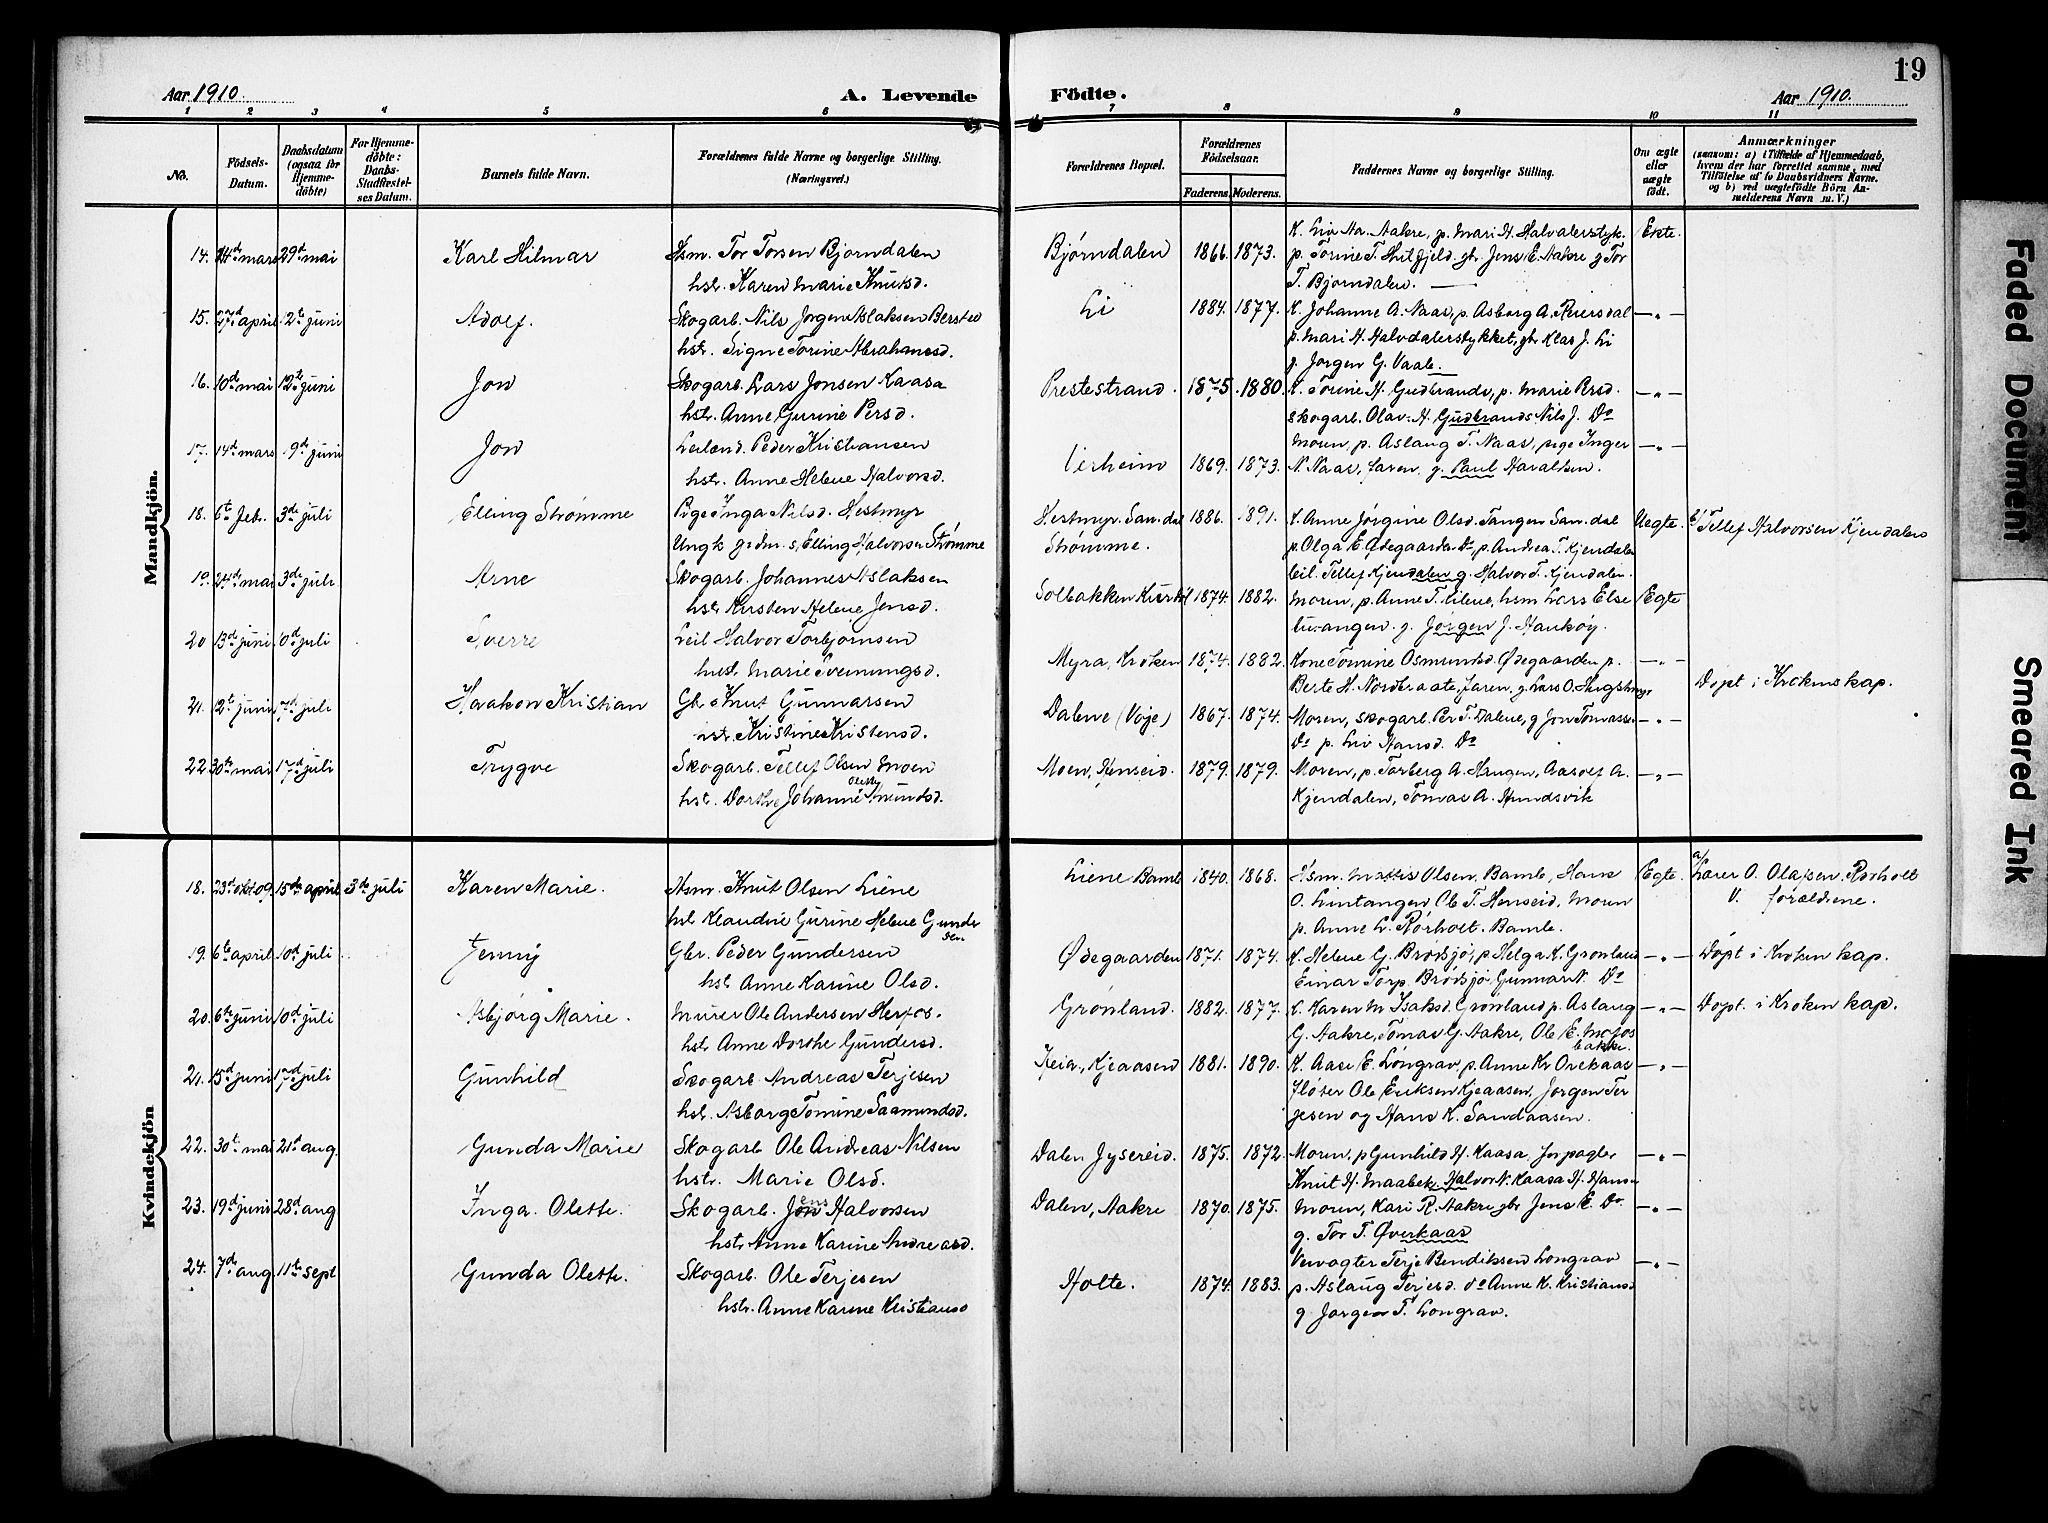 19
Aar 1910.
A. Levende
Födte.
Aar 1910.
1 2 3 4 5 6 7 8 9 10 11
No.
Födsels-Datum.
Daabsdatum (ogsaa for Hjemme-döbte)
For Hjemme-döbte: Daabs-Stadfæstel-ses Datum.
Barnets fulde Navn.
Forældrenes fulde Navne og borgerlige Stilling.
(Næringsvei.)
Forældrenes Bopæl.
Forældrenes Födselsaar.
Faderens. Moderens.
Faddernes Navne og borgerlige Stilling.
Om ægte eller uægte födt.
Anmærkninger
(saasom: a) i Tilfælde af Hjemmedaab, hvem der har forrettet samme, med Tilföielse af to Daabsvidners Navne, og b) ved uægtefödte Börn Anmelderens Navn m. V.)
Mandkjön.
14. 14de mars 29de mai Karl Hilmar Hsm. Tor Torsen Bjørndalen
hstr. Karen Marie Knutsd.
Bjørndalen 1866. 1873. K. Liv Aa. Aakre, p. Mari H. Halvalerstyk.
p. Torine T. Hvitfjeld. gbr. Jens E. Aakre g Tor
T. Bjørndalen.
Ekte.
15. 27de april 12te juni Adolf. Skogarb. Nils Jørgen Aslaksen Berstad
hstr. Signe Torine Abrahamsd.
Li 1884. 1877. K. Johanne A. Naas, p. Asborg A. Reiersdal
p. Mari H. Halvdalerstykket, gbr Klas J. Li
g. Jørgen G. Vaale.
16. 10de mai 12te juni Jon Skogarb. Lars Jonsen Kaasa
hstr. Anne Gurine Persd.
Prestestrand. 1875. 1880. K. Torine H. Gudbrands, p. Marie Persd.
skogarb. Olav. H. Gudbrands Nils J. Do
17. 14de mars 19de juni Jon Leilænd. Peder Kristiansen
hstr. Anne Helene Halvorsd.
Verheim 1869. 1873. Moren, p. Aslaug T. Naas, pige Inger
N. Naas, faren, g. Paul Haraldsen.
18. 6te febr. 3de juli Elling Strømme Pige Inga Nilsd. Hestmyr
Ungk. gdm. s. Elling Halvorsen Strømme
Hestmyr. Sandal
Strømme.
1886. 1891. K. Anne Jørgine Olsd. Tangen Sandal
p. Olga E. Ødegaarden Do, p. Andrea T. Kjendalen
leil. Tellef Kjendalen g. Halvor T. Kjendalen.
Uegte. b/ Tellef Halvorsen Kjendalen
19. 24de mai 3de juli Arne Skogarb. Johannes Aslaksen
hstr Kirsten Helene Jensd.
Solbakken 1874. 1882. Moren, p. Anne T. Eilene, hsm Lars Else
tuvangen. g. Jørgen J. Haukøy.
Egte
20 13de juni 10de juli Sverre Leil Halvor Torbjørnsen
hust. Marie Sveinungsd.
Myra, Kroken 1874. 1882. Kone Tomine Osmundsd. Ødegaarden p.
Berte H. Nordbraate, faren, g. Lars O. Haugstmyr
Døpt i Krokens kap.
21. 12te juni 17de juli Haakon Kristian Gbr Knut Gunnarsen
hstr. Kristine Kristensd.
Dalene (Voje) 1867. 1874. Moren, skogarb. Per T. Dalene, g Jon Tomass.
Do p. Liv Hansd. Do
22 30te mai 17de juli Trygve Skogarb. Tellef Olsen Moen
hst. Dorthe Johanne Amundsd.
Moen, Henseid. 1879. 1879. Moren, p. Torberg A. Haugen, Aasolf A.
Kjendalen, Tomas A. Hundsvik
Kvindekjön
18. 23de okt 09. 15de april 3de juli Karen Marie. Hsm. Knut Olsen Liene
hst. Klaudine Gurine Helene Gunder
sen
Liene Bamle 1840. 1868. Hsm. Mattis Olsen, Bamle, Hans
O. Lintangen, Ole T. Henseid, Moren
p. Anne L. Rørholt. Bamle.
Egte. a/ Lærer O. Olafsen. Rørholt
V. forældrene.
19. 6te april 10de juli Jenny Gbr. Peder Gundersen
hst. Anne Karine Olsd.
Ødegaarden 1871. 1874. K. Helene G. Brødsjø, p. Helga K. Grønland
Einar Torp. Brødsjø, Gunnar N. Do
Døpt i Kroken kap.
20. 6te juni 10de juli Asbjørg Marie. Murer Ole Andersen Herfos.
hstr. Anne Dorthe Gundersd.
Grønland. 1882. 1877. K. Karen M Isaksd. Grønland p. Aslaug
G. Aakre, Tomas G. Aakre, Ole E. Mofos
bakke.
Døpt. i Kroken kap.
21. 15de juni 17de juli Gunhild Skogarb. Andreas Terjesen
hst. Asborg Tomine Saamundsd.
Heia, Kjeaasen 1881. 1890. K. Aase E. Longrav p. Anne Kr Orekaas
Fløter Ole Eriksen Kjeaasen, Jørgen Ter
jesen og Hans K. Sandaasen.
22. 30te mai 21de aug. Gunda Marie Skogarb Ole Andreas Nilsen
hstr. Marie Olsd.
Dalen Jysereid. 1875. 1872. Moren, p Gunhild H. Kaasa, Forpagter
Knut H. Maabek, Halvor N. Kaasa H. Hans
23. 19de juni 28de aug Inga Olette. Skogarb. Jens Halvorsen
hstr Anne Karine Andreasd.
Dalen, Aakre 1870. 1875. Moren, Kari R. Aakre gbr Jens E. Do
g. Tor T. Øverkaas
24. 7de aug 11te sept Gunda Olette. Skogarb. Ole Terjesen
hstr. Anne Karine Kristiansd
Holte. 1874. 1883. Veivogter Terje Bendiksen Longrav
p. Aslaug Terjesd. do Anne K. Kristiansd
g. Jørgen T. Longrav.
Faded Document
Smeared Ink